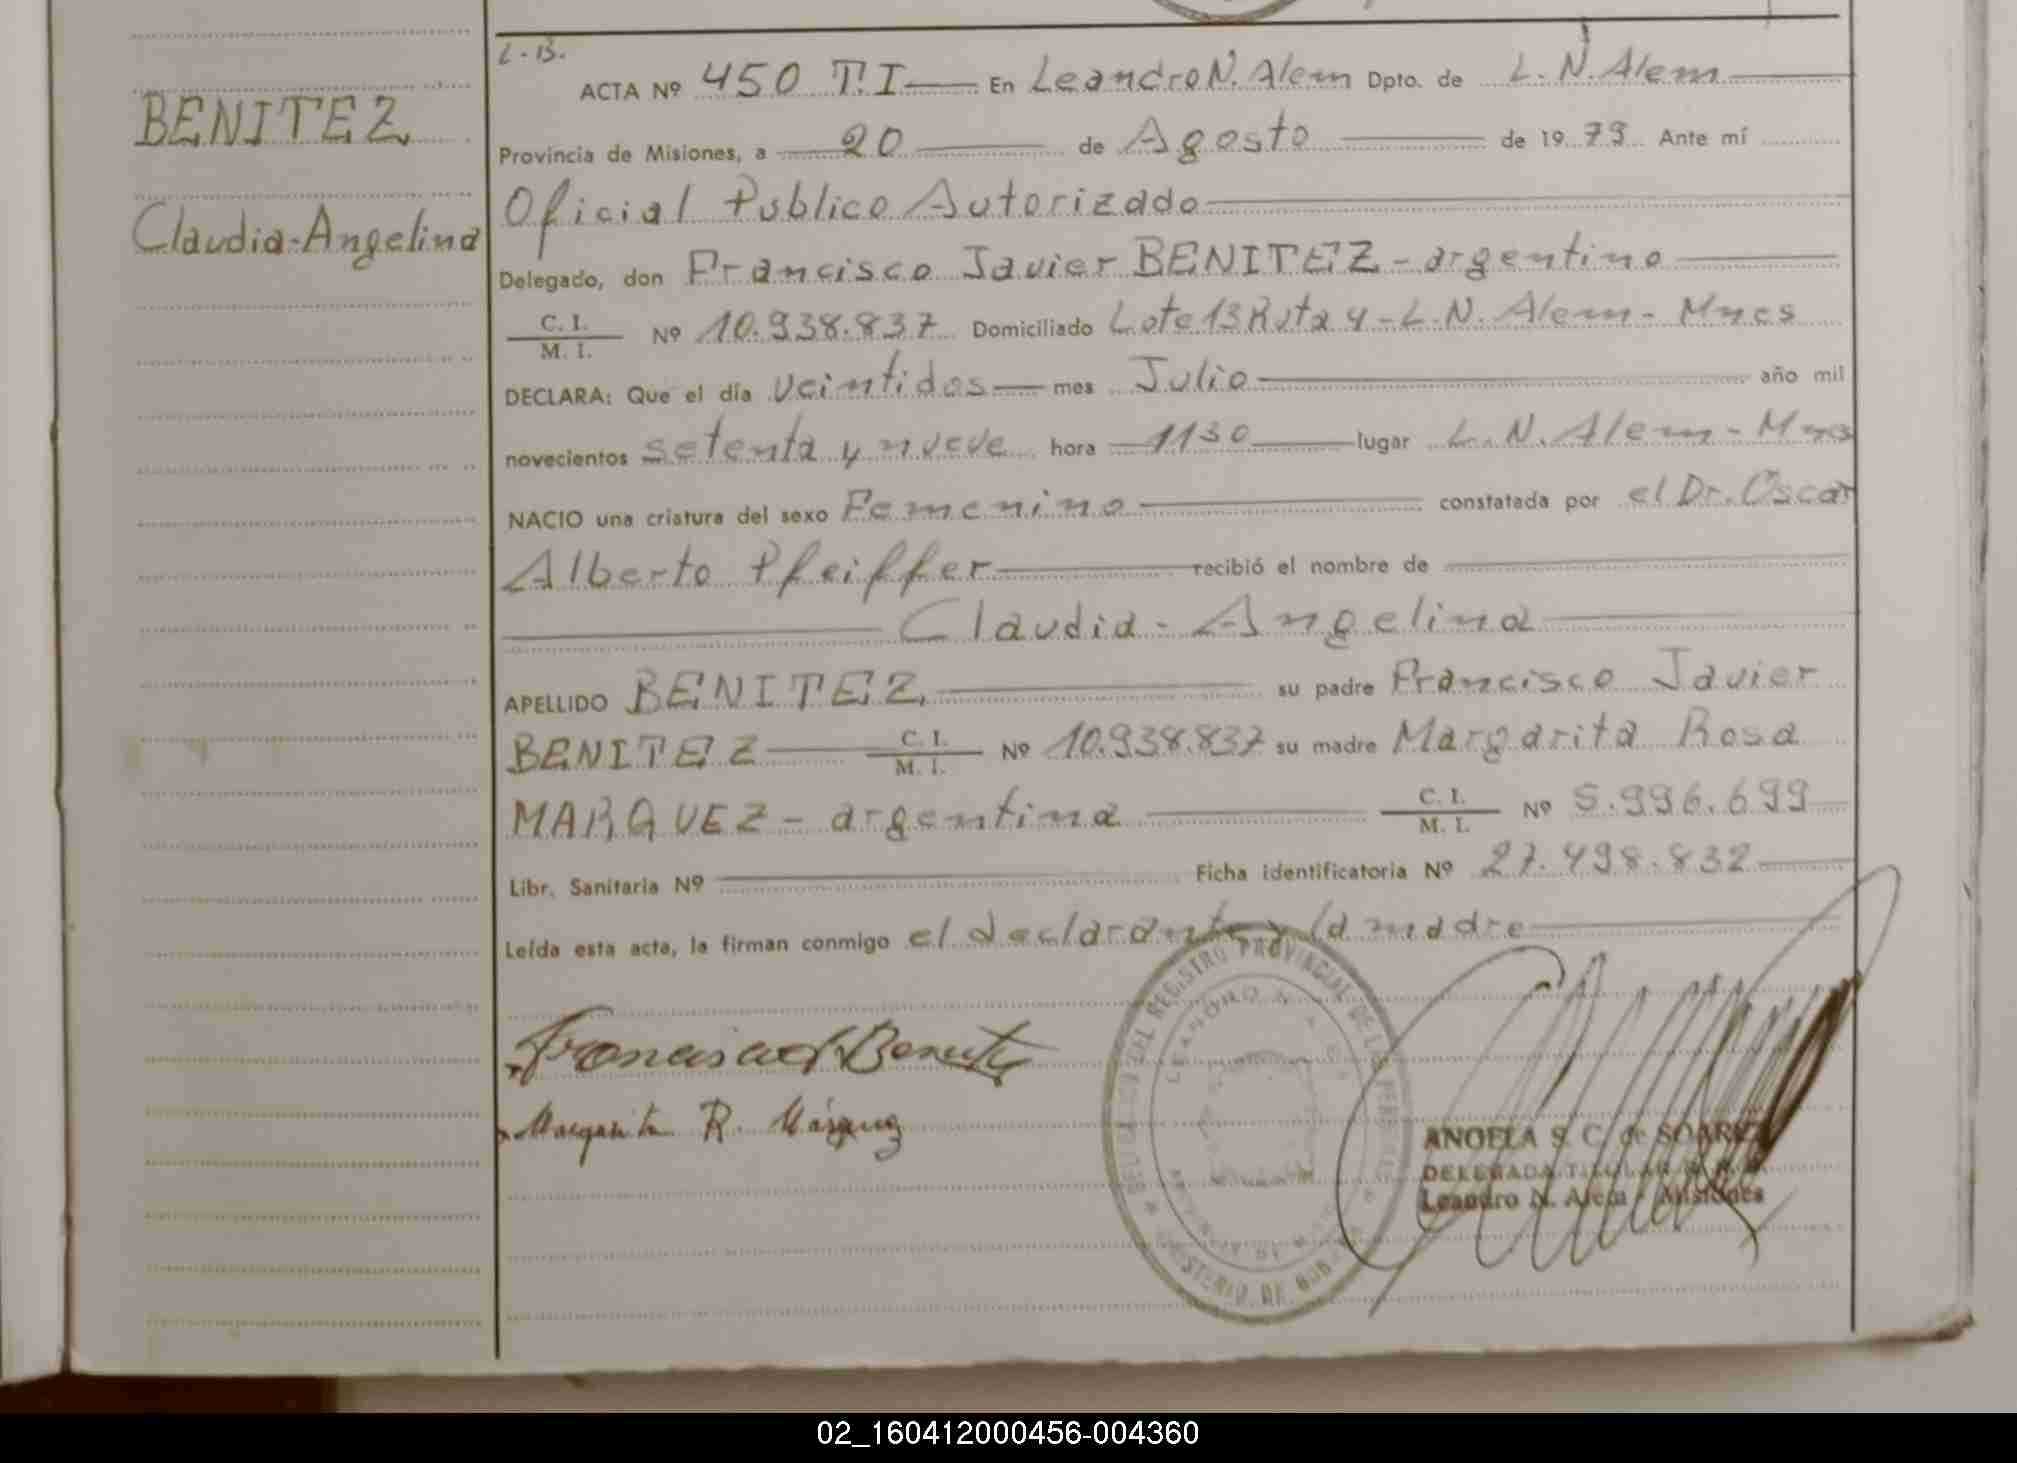 L-B.
ACTA Nº 450 T.I En Leandro N. Alem Dpto. de L. N. Alem
BENITEZ
Provincia de Misiones, a 20 de Agosto de 1979 Ante mí
Oficial Publico Autorizado
Claudia-Angelina
Delegado, don Francisco Javier BENITEZ - argentino
C. I.
M. I. Nº 10.938.837 Domiciliado Lote 13 Ruta 4 - L.N. Alem - Mnes
DECLARA: Que el día veintidos mes Julio año mil
novecientos setenta y nueve hora 1130 lugar L. N. Alem - Mnes
NACIO una criatura del sexo Femenino constatada por el Dr. Oscar
Alberto Pfeiffer recibió el nombre de
Claudia - Angelina
APELLIDO BENITEZ su padre Francisco Javier
BENITEZ C. I. M. I. Nº 10.938.837 su madre Margarita Rosa
MARQUEZ - argentina C. I. M. I. Nº 5.996.699
Libr. Sanitaria Nº Ficha identificatoria Nº 27.498.832
Leída esta acta, la firman conmigo el declarante y la madre
DEL REGISTRO PROVINCIAL DE LAS PERSONAS
MINISTERIO DE GOBIERNO
LEANDRO N. ALEM
Francisco J Benitez
Margarita R. Márquez
ANGELA S. C. de SOAREZ
DELEGADA TITULAR
Leandro N. Alem - Misiones
02_160412000456-004360